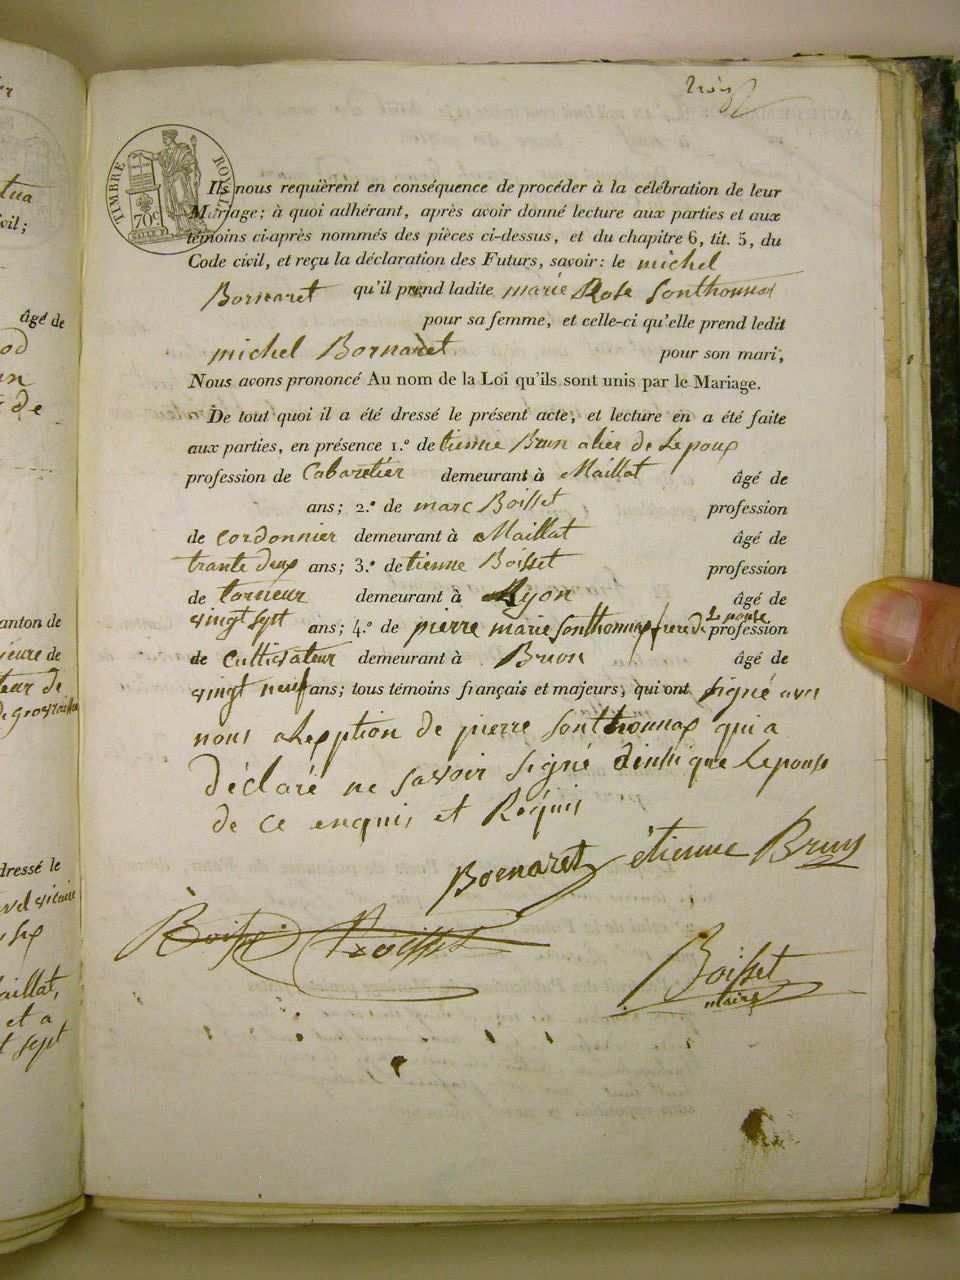 trois
TIMBRE ROYAL
70c
Ils nous requièrent en conséquence de procéder à la célébration de leur
Mariage; à quoi adhérant, après avoir donné lecture aux parties et aux
témoins ci-après nommés des pièces ci-dessus, et du chapitre 6, tit. 5, du
Code civil, et reçu la déclaration des Futurs, savoir: le michel
Bornaret qu'il prend ladite marie Rose Sonthonnax
pour sa femme, et celle-ci qu'elle prend ledit
michel Bornaret pour son mari,
Nous avons prononcé Au nom de la Loi qu'ils sont unis par le Mariage.
De tout quoi il a été dressé le présent acte, et lecture en a été faite
aux parties, en présence 1.º de tienne Brun alier de Lepoux
profession de Cabaretier demeurant à Maillat âgé de
ans; 2.º de marc Boisset profession
de cordonnier demeurant à Maillat âgé de
trante deux ans; 3.º de tienne Boisset profession
de torneur demeurant à Ryon âgé de
vingt sept ans; 4.º de pierre marie Sonthonnax frere de Lepouse profession
de Cultivateur demeurant à Brion âgé de
vingt neuf ans; tous témoins français et majeurs, qui ont signé avec
nous alexption de pierre Sonthonnax qui a
déclaré ne savoir signé dinsi que Lepouse
de ce enquis et Requis
Bornaret étienne Brun
Boisset Boisset
Boisset
maire
âgé de
de
anton de
ieure de
teur de
dressé le
aillat,
et a
sept